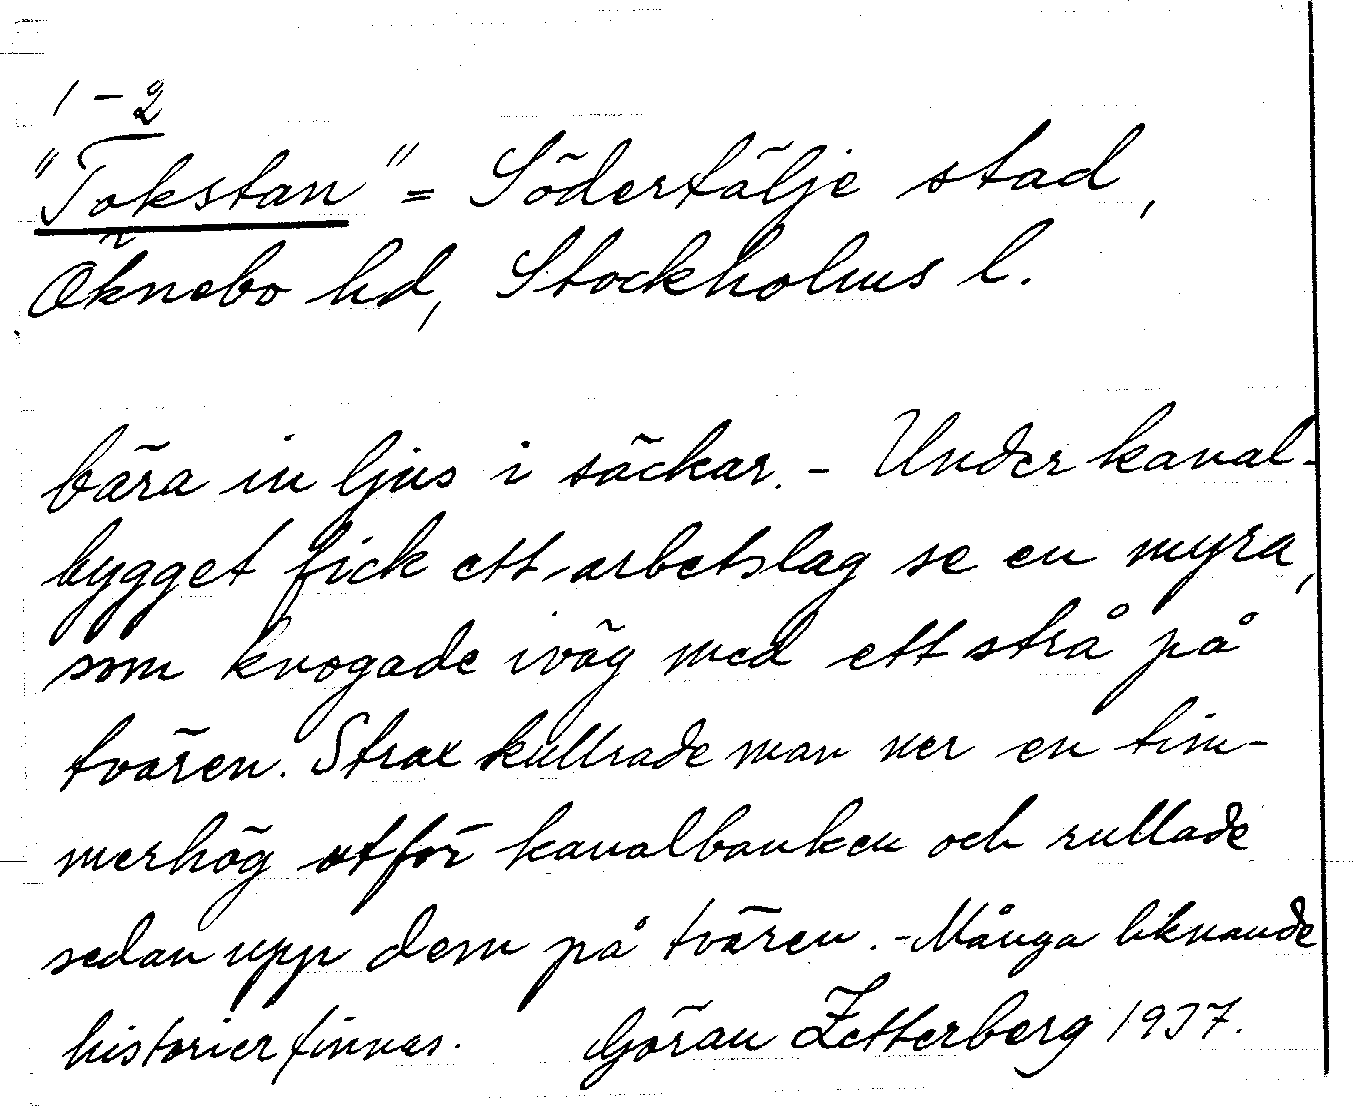 1-2
"Tokstan" = Södertälje stad,
Öknebo hd, Stockholms l.
bära in ljus i säckar. - Under kanal-
bygget fick ett arbetslag se en myra,
som knogade iväg med ett strå på
tvären. Strax kullrade man ner en tim-
merhög utför kanalbanken och rullade
sedan upp dem på tvären. - Många liknande
historier finnas. Göran Zetterberg 1937.